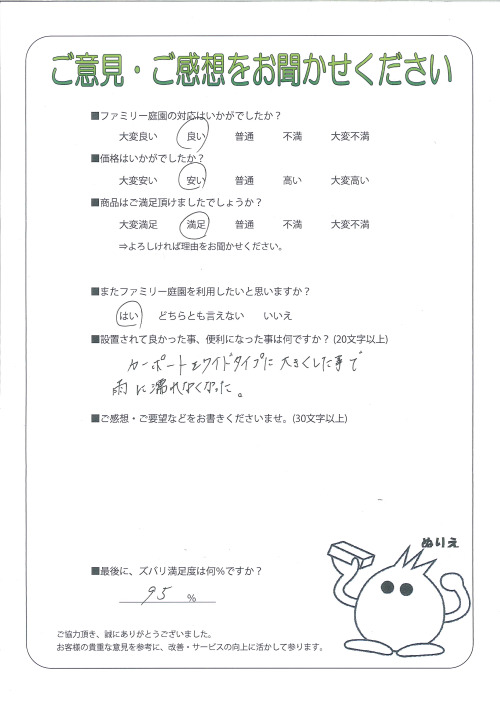 ご意見・ご感想をお聞かせください
■ファミリー庭園の対応はいかがでしたか？
大変良い 良い 普通 不満 大変不満
■価格はいかがでしたか？
大変安い 安い 普通 高い 大変高い
■商品はご満足頂けましたでしょうか？
大変満足 満足 普通 不満 大変不満
⇒よろしければ理由をお聞かせください。
■またファミリー庭園を利用したいと思いますか？
はい どちらとも言えない いいえ
■設置されて良かった事、便利になった事は何ですか？(20文字以上)
カーポートをワイドタイプに大きくした事で
雨に濡れなくなった。
■ご感想・ご要望などをお書きくださいませ。(30文字以上)
ぬりえ
■最後に、ズバリ満足度は何%ですか？
95 %
ご協力頂き、誠にありがとうございました。
お客様の貴重な意見を参考に、改善・サービスの向上に活かして参ります。